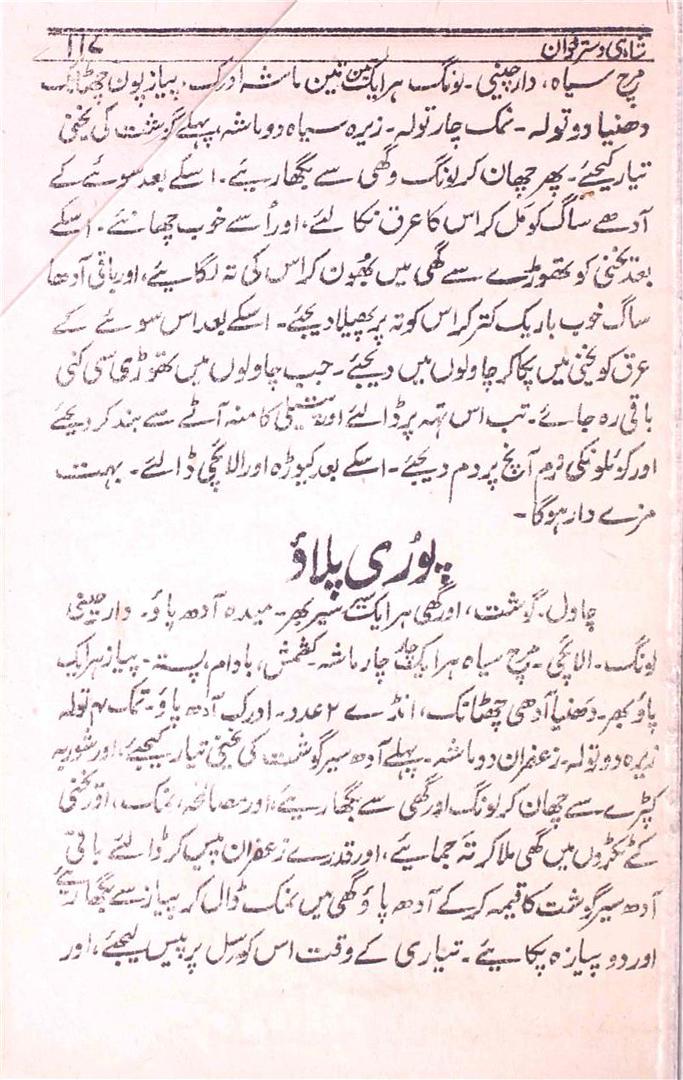 شاہی دسترخوان ۱۱۷
مرچ سیاہ، دارچینی۔ لونگ ہر ایک تین تین ماشہ ادرک، پیاز پون چھٹانک
دھنیا دو تولہ۔ نمک چار تولہ۔ زیرہ سیاہ دو ماشہ، پہلے گوشت کی یخنی
تیار کیجئے۔ پھر چھان کر لونگ و گھی سے بگھاریئے۔ اسکے بعد سوئے کے
آدھے ساگ کو مَل کر اس کا عرق نکالئے، اور اُسے خوب چھانئے۔ اسکے
بعد یخنی کو تھوڑے سے گھی میں بھُون کر اس کی تہ لگایئے، اور باقی آدھا
ساگ خوب باریک کتر کر اس کو تہ پر پھیلا دیجئے۔ اسکے بعد اس سوئے کے
عرق کو یخنی میں پکا کر چاولوں میں دیجئے۔ جب چاولوں میں تھوڑی سی کنی
باقی رہ جائے۔ تب اس تہہ پر ڈالئے اور پتیلی کا منہ آٹے سے بند کر دیجئے
اور کوئلونکی نرم آنچ پر دم دیجئے۔ اسکے بعد کیوڑہ اور الائچی ڈالئے۔ بہت
مزے دار ہوگا۔
پوُری پلاؤ
چاول۔ گوشت، اور گھی ہر ایک سیر سیر بھر۔ میدہ آدھ پاؤ۔ دارچینی
لونگ۔ الائچی۔ مرچ سیاہ ہر ایک چار چار ماشہ۔ کشمش، بادام، پستہ۔ پیاز ہر ایک
پاؤ بھر۔ دھنیا آدھی چھٹانک، انڈے ۲ عدد۔ ادرک آدھ پاؤ۔ نمک ۴ تولہ
زیرہ دو تولہ۔ زعفران دو ماشہ۔ پہلے آدھ سیر گوشت کی یخنی تیار کیجئے، اور شوربہ
کپڑے سے چھان کر لونگ اور گھی سے بگھاریئے، اور مصالحہ، نمک، اور یخنی
کے ٹکڑوں میں گھی ملا کر تہ جمایئے، اور قدرے زعفران پیس کر ڈالئے باقی
آدھ سیر گوشت کا قیمہ کر کے آدھ پاؤ گھی میں نمک ڈال کر پیاز سے بگھاریئے
اور دو پیازہ پکایئے۔ تیاری کے وقت اس کو سِل پر پیس لیجئے، اور